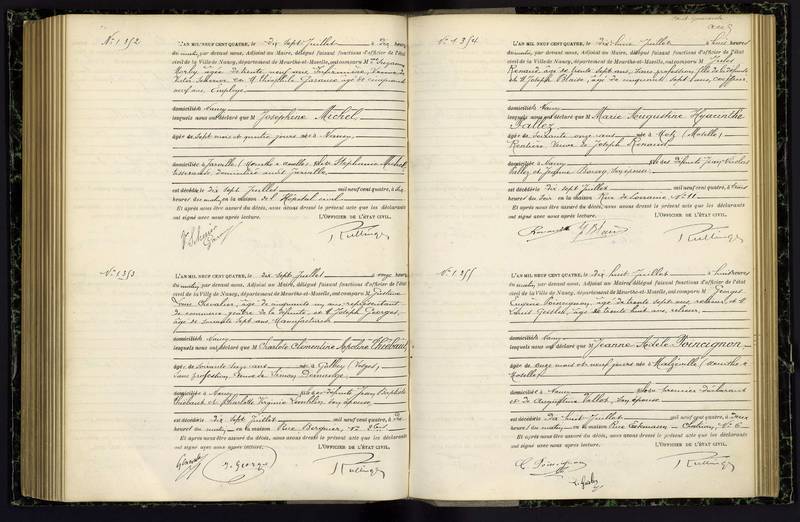 N° 1352
L'AN MIL NEUF CENT QUATRE, le dix sept Juillet à dix heures
du matin, par devant Nous, Adjoint au Maire, délégué faisant fonctions d'officier de l'état
civil de la Ville de Nancy, département de Meurthe-et-Moselle, ont comparu M
âgée de trente neuf ans, Infirmière,
Garance âgé de cinquante
neuf ans, Employé,
domiciliés à Nancy
lesquels nous ont déclaré que M Joséphine Michel
âgée de sept mois et quatre jours née à Nancy,
domiciliée à Jarville (Meurthe & Moselle), fille de Stéphanie Michel
domiciliée audit Jarville
est décédée le dix sept Juillet mil neuf cent quatre, à
heures du matin, en la maison de l'Hôpital civil
Et après nous être assuré du décès, nous avons dressé le présent acte que les déclarants
ont signé avec nous après lecture. L'OFFICIER DE L'ÉTAT CIVIL,
N° 1353
L'AN MIL NEUF CENT QUATRE, le dix sept Juillet à onze heures
du matin, par devant Nous, Adjoint au Maire, délégué faisant fonctions d'officier de l'état
civil de la Ville de Nancy, département de Meurthe-et-Moselle, ont comparu M
Chevalier, âgé de cinquante un ans, représentant
de commerce, gendre de la défunte, et M Joseph Georges,
âgé de soixante sept ans, Manufacturier
domiciliés à Nancy
lesquels nous ont déclaré que M Charlotte Clémentine Apoline Thiébaut,
âgée de soixante seize ans née à Gilley (Vosges),
sans profession, Veuve de
domiciliée à Nancy fille des défunts Jean Baptiste
Thiébaut et Charlotte Virginie son épouse
est décédée le dix sept Juillet mil neuf cent quatre, à dix
heures du matin, en la maison Rue
Et après nous être assuré du décès, nous avons dressé le présent acte que les déclarants
ont signé avec nous après lecture. L'OFFICIER DE L'ÉTAT CIVIL,
J. Georges
N° 1354
L'AN MIL NEUF CENT QUATRE, le dix-huit Juillet à huit heures
du matin, par devant Nous, Adjoint au Maire, délégué faisant fonctions d'officier de l'état
civil de la Ville de Nancy, département de Meurthe-et-Moselle, ont comparu M Jules
Renaud, âgé de trente sept ans, sans profession, fils de la défunte
et M Joseph Blaise, âgé de cinquante sept ans, coiffeur,
domiciliés à Nancy
lesquels nous ont déclaré que M Marie Augustine Hyacinthe
Vallez
âgée de soixante onze ans née à Metz (Moselle)
Rentière, Veuve de Joseph Renaud
domiciliée à Nancy fille des défunts Jean Nicolas
Vallez et Jeanne son épouse
est décédée le dix sept Juillet mil neuf cent quatre, à trois
heures du soir en la maison Rue de Lorraine, N° 11
Et après nous être assuré du décès, nous avons dressé le présent acte que les déclarants
ont signé avec nous après lecture. L'OFFICIER DE L'ÉTAT CIVIL,
N° 1355
L'AN MIL NEUF CENT QUATRE, le dix huit Juillet à huit heures
du matin, par devant Nous, Adjoint au Maire, délégué faisant fonctions d'officier de l'état
civil de la Ville de Nancy, département de Meurthe-et-Moselle, ont comparu M Georges
Eugène Poincignon, âgé de trente sept ans, relieur, et M
Louis âgé de trente huit ans, relieur,
domiciliés à Nancy
lesquels nous ont déclaré que Jeanne Adèle Poincignon
âgée de onze mois et neuf jours née à Malzéville (Meurthe &
Moselle)
domiciliée à Nancy fille du premier déclarant
et de Augustine son épouse
est décédée le dix huit Juillet mil neuf cent quatre, à deux
heures du matin, en la maison Rue Erckmann-Chatrian, N° 6
Et après nous être assuré du décès, nous avons dressé le présent acte que les déclarants
ont signé avec nous après lecture. L'OFFICIER DE L'ÉTAT CIVIL,